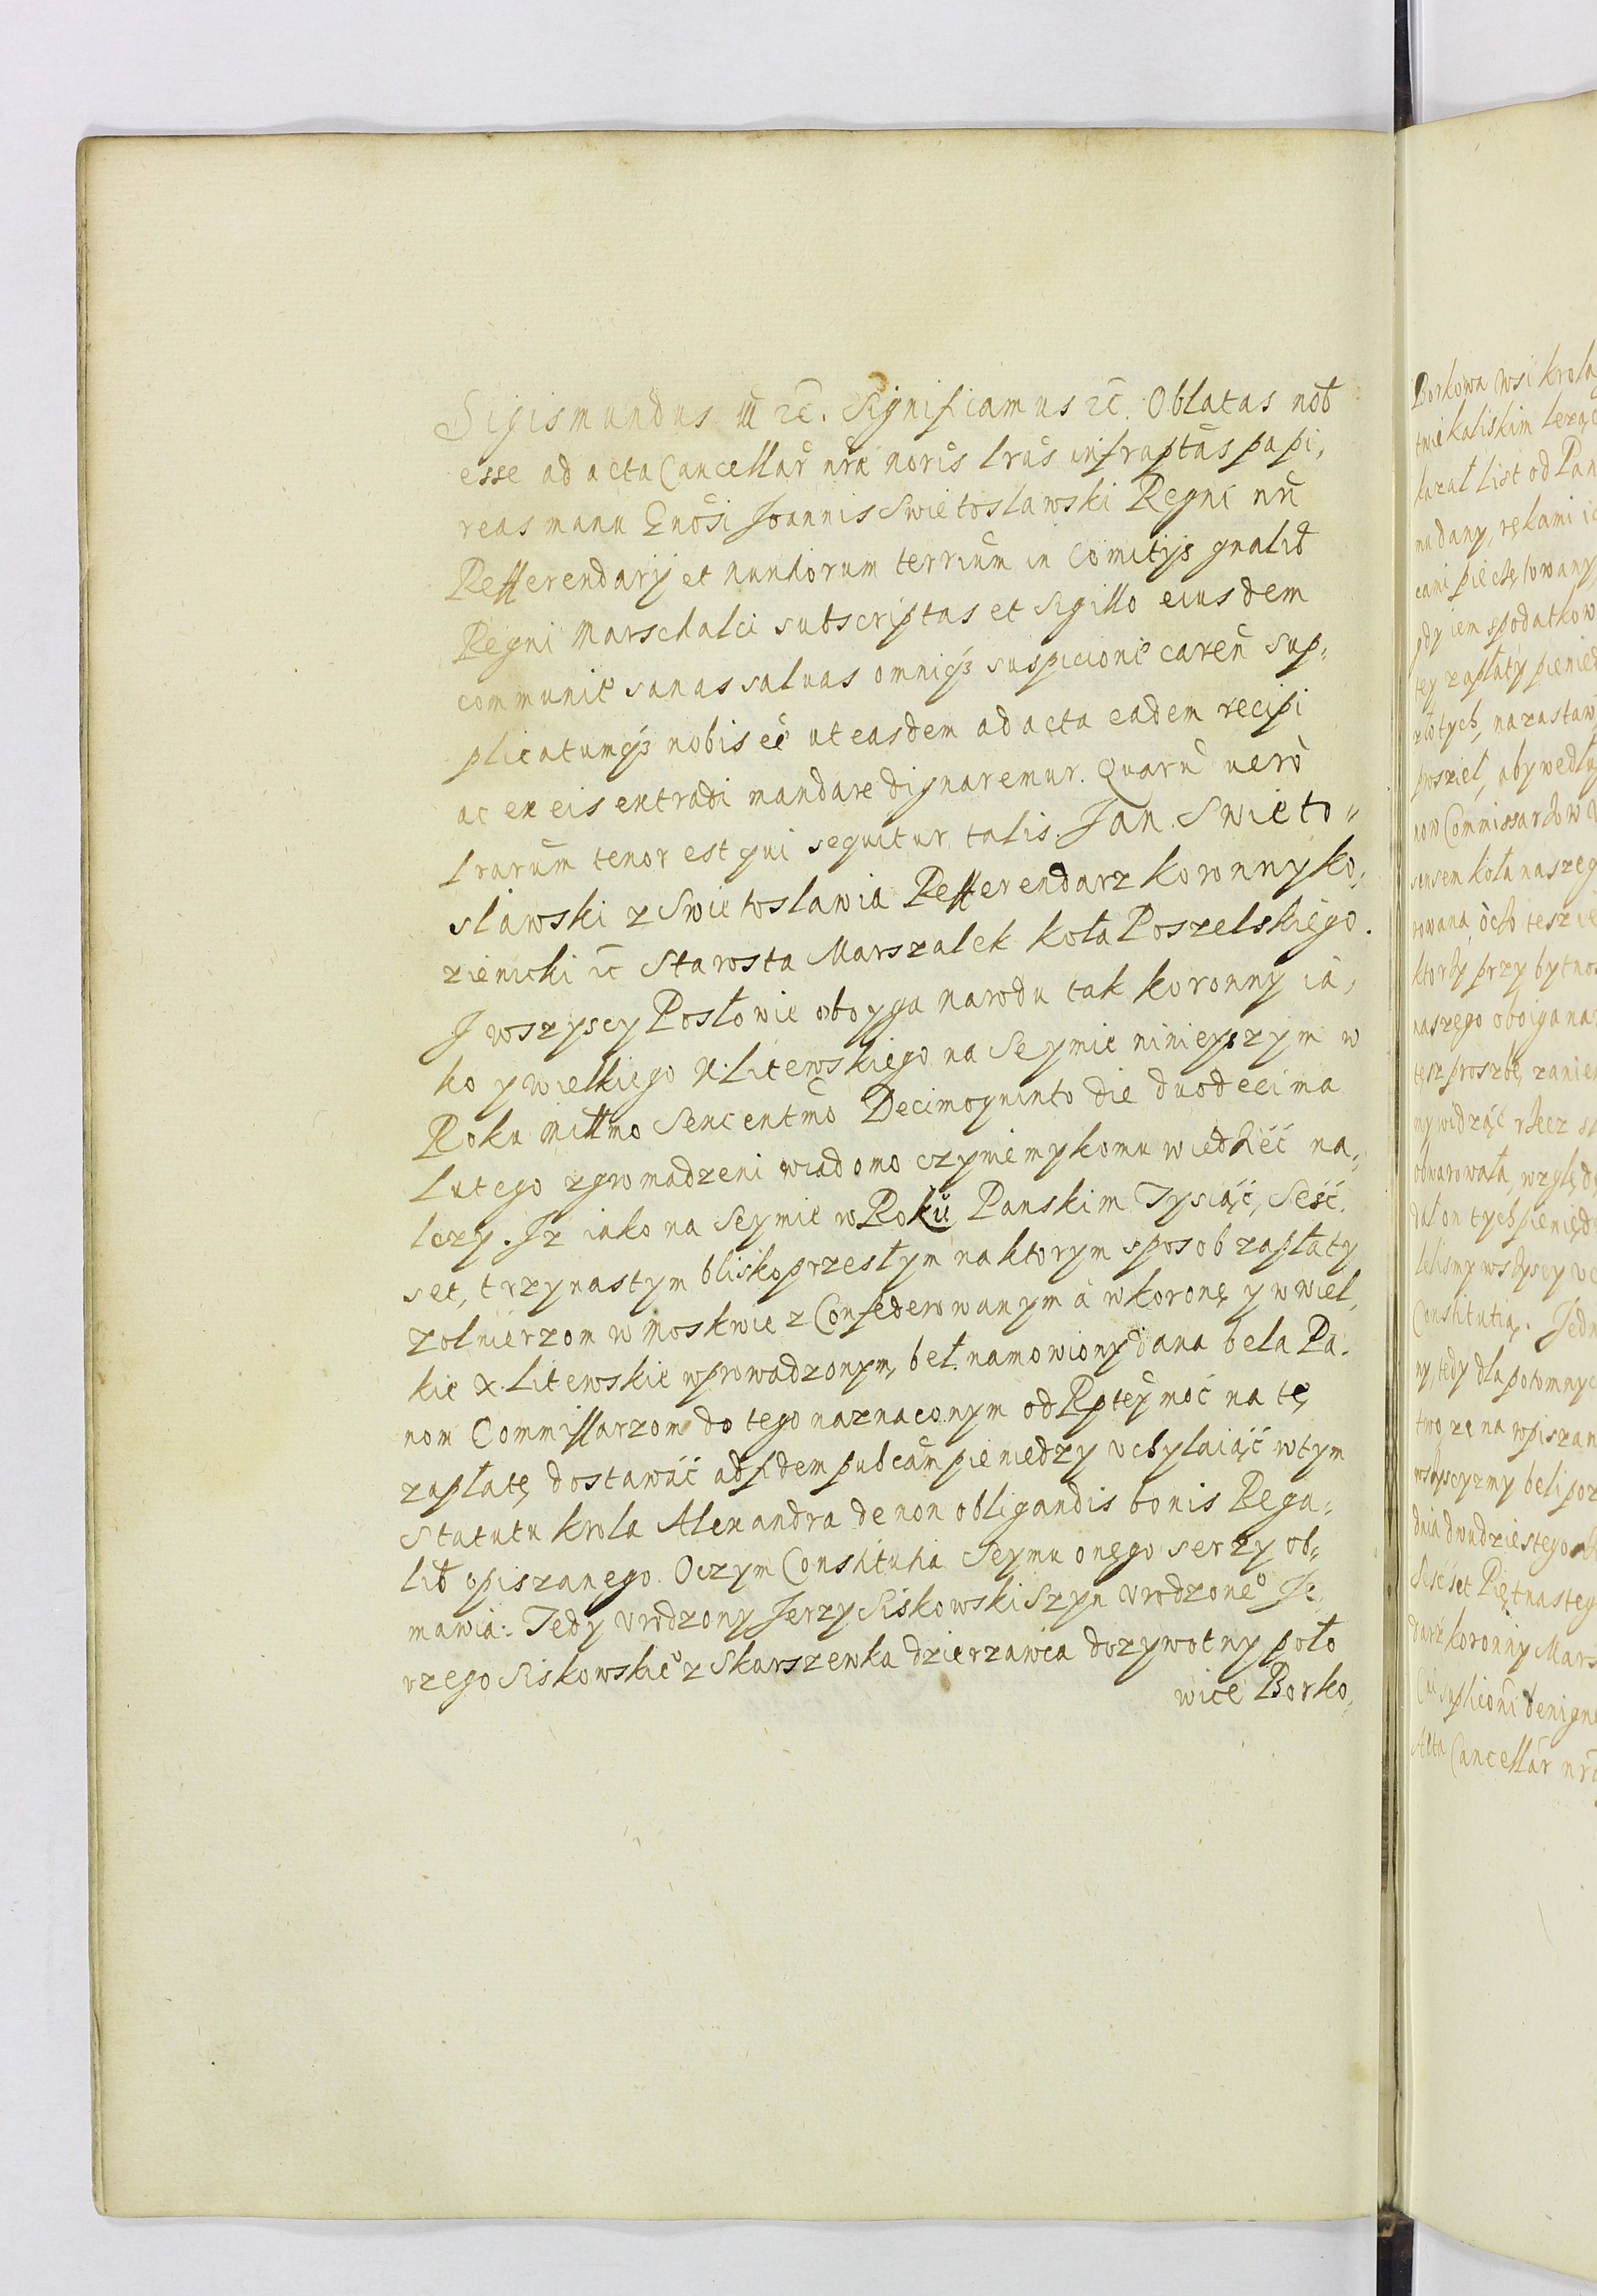 Sigismundus III ꝛc̄. Significamus ꝛc̄. Oblatas nob̄
esse ad acta Cancellar̄ nr̄ae noris lrās infraptās papi,
reas manu Gnōsi Joannis Swietoslawski Regni nr̄i
Refferendarij et nuntiorum terriūm in Comitijs gnalib̄
Regni Marschalci subscriptas et sigillo eiusdem
communit̄ sanas saluas omniqȝ suspicione caren̄ sup⸗
plicatumqȝ nobis eē ut easdem ad acta eadem recipi
ac ex eis extradi mandare dignaremur. Quarū verò
lrarūm tenor est qui sequitur talis. Jan Swieto⸗
sławski z Swietoslawia Refferendarz koronny ko,
zienicki ꝛc̄ Starosta Marszalek koła Poszelskiego.
J wszyscy Posłowie oboyga narodu tak koronny ia,
ko y wielkiego X. Litewskiego na Seymie ninieyszym w
Roku Millmo Sexcentmō Decimoquinto die duodecima
Lutego zgromadzeni wiadomo czyniemy komu wiedzieć na,
lezy. Jz iako na Seymie w Roku Panskim Tysiąć, Seść.
set, trzynastym blisko przesłym na ktorym sposob zapłaty
zolnierzom w Moskwie z Confederowanym à w koronę y w wiel,
kie X. Litewskie wprowadzonym, beł namowiony dana bela Pa.
nom Commissarzom do tego naznaconym od Rptey moć na tę
zapłatę dostawać ad fidem pubcām pieniedzy vchylaiąć w tym
Statutu krola Alexandra de non obligandis bonis Rega,
lib̄ opiszanego. O czym Constitutia Seymu onego serzy ob⸗
mawia: Tedy vrodzony Jerzy Siskowski Szyn vrodzone⁰ Je,
rzego Siskowskie⁰ z Skarszewka dzierzawca dozywotny poło
wice Borko,
Borkowa wsi krola
twie kaliskim leząc
kazał List od Pan
mu dany, rękami ic
cami piećętowany
gdy iem s podatkow
tey zapłaty pienied
złotych, na zastaw
proszieł, aby wedłu
now Commissarzow
sensem koła naszeg
rowana, ò cżo tesz ie
ktorzy przy bytnos
naszego oboiga nar
tesz prosżbę zanies
my widząć rżecz sł
obwarowała, względ
dał on tych pienięd
lelismy wszyscy
Constitutią. Jedn
ny, tedy dla potomnyc
two ze na wpiszan
wszyscyzmy beli poz
dnia dwudziestego
Seśćset Piętnasteg
darz koronny Mars
Cui suplicōni benigne
Acta Cancellar nrā